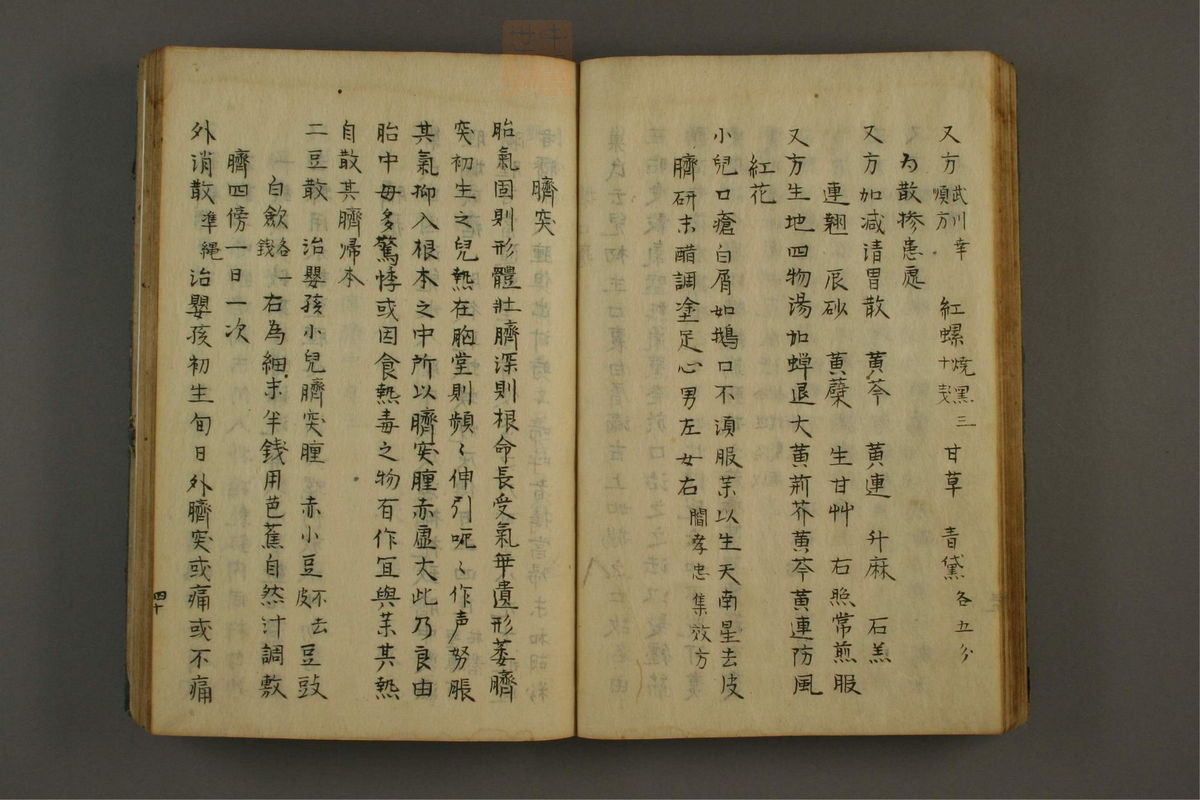 又方 武川幸順方 紅螺燒黑三十戔 甘草 青黛各五分
為散摻患處
又方加减清胃散 黄芩 黄連 升麻 石羔
連翹 辰砂 黄蘗 生甘艸 右照常煎服
又方生地四物湯加蝉退大黄荊芥黄芩黄連防風
紅花
小兒口瘡白屑如鵝口不湏服茱以生天南星去皮
臍研末醋調塗足心男左女右 閻孝忠集效方
臍突
胎氣固則形體壯臍深則根命長受氣毎遺形萎臍
突初生之兒熱在胸堂則頻〻伸引呃〻作声努脹
其氣抑入根本之中所以臍突腫赤虛大此乃良由
胎中母多驚悸或因食熱毒之物有作冝與茱其熱
自散其臍帰本
二豆散 治嬰孩小兒臍突腫 赤小豆不去皮 豆豉
白歛各一錢 右為細末半錢用芭蕉自然汁調敷
臍四傍一日一次
外消散 準繩 治嬰孩初生旬日外臍突或痛或不痛
四十